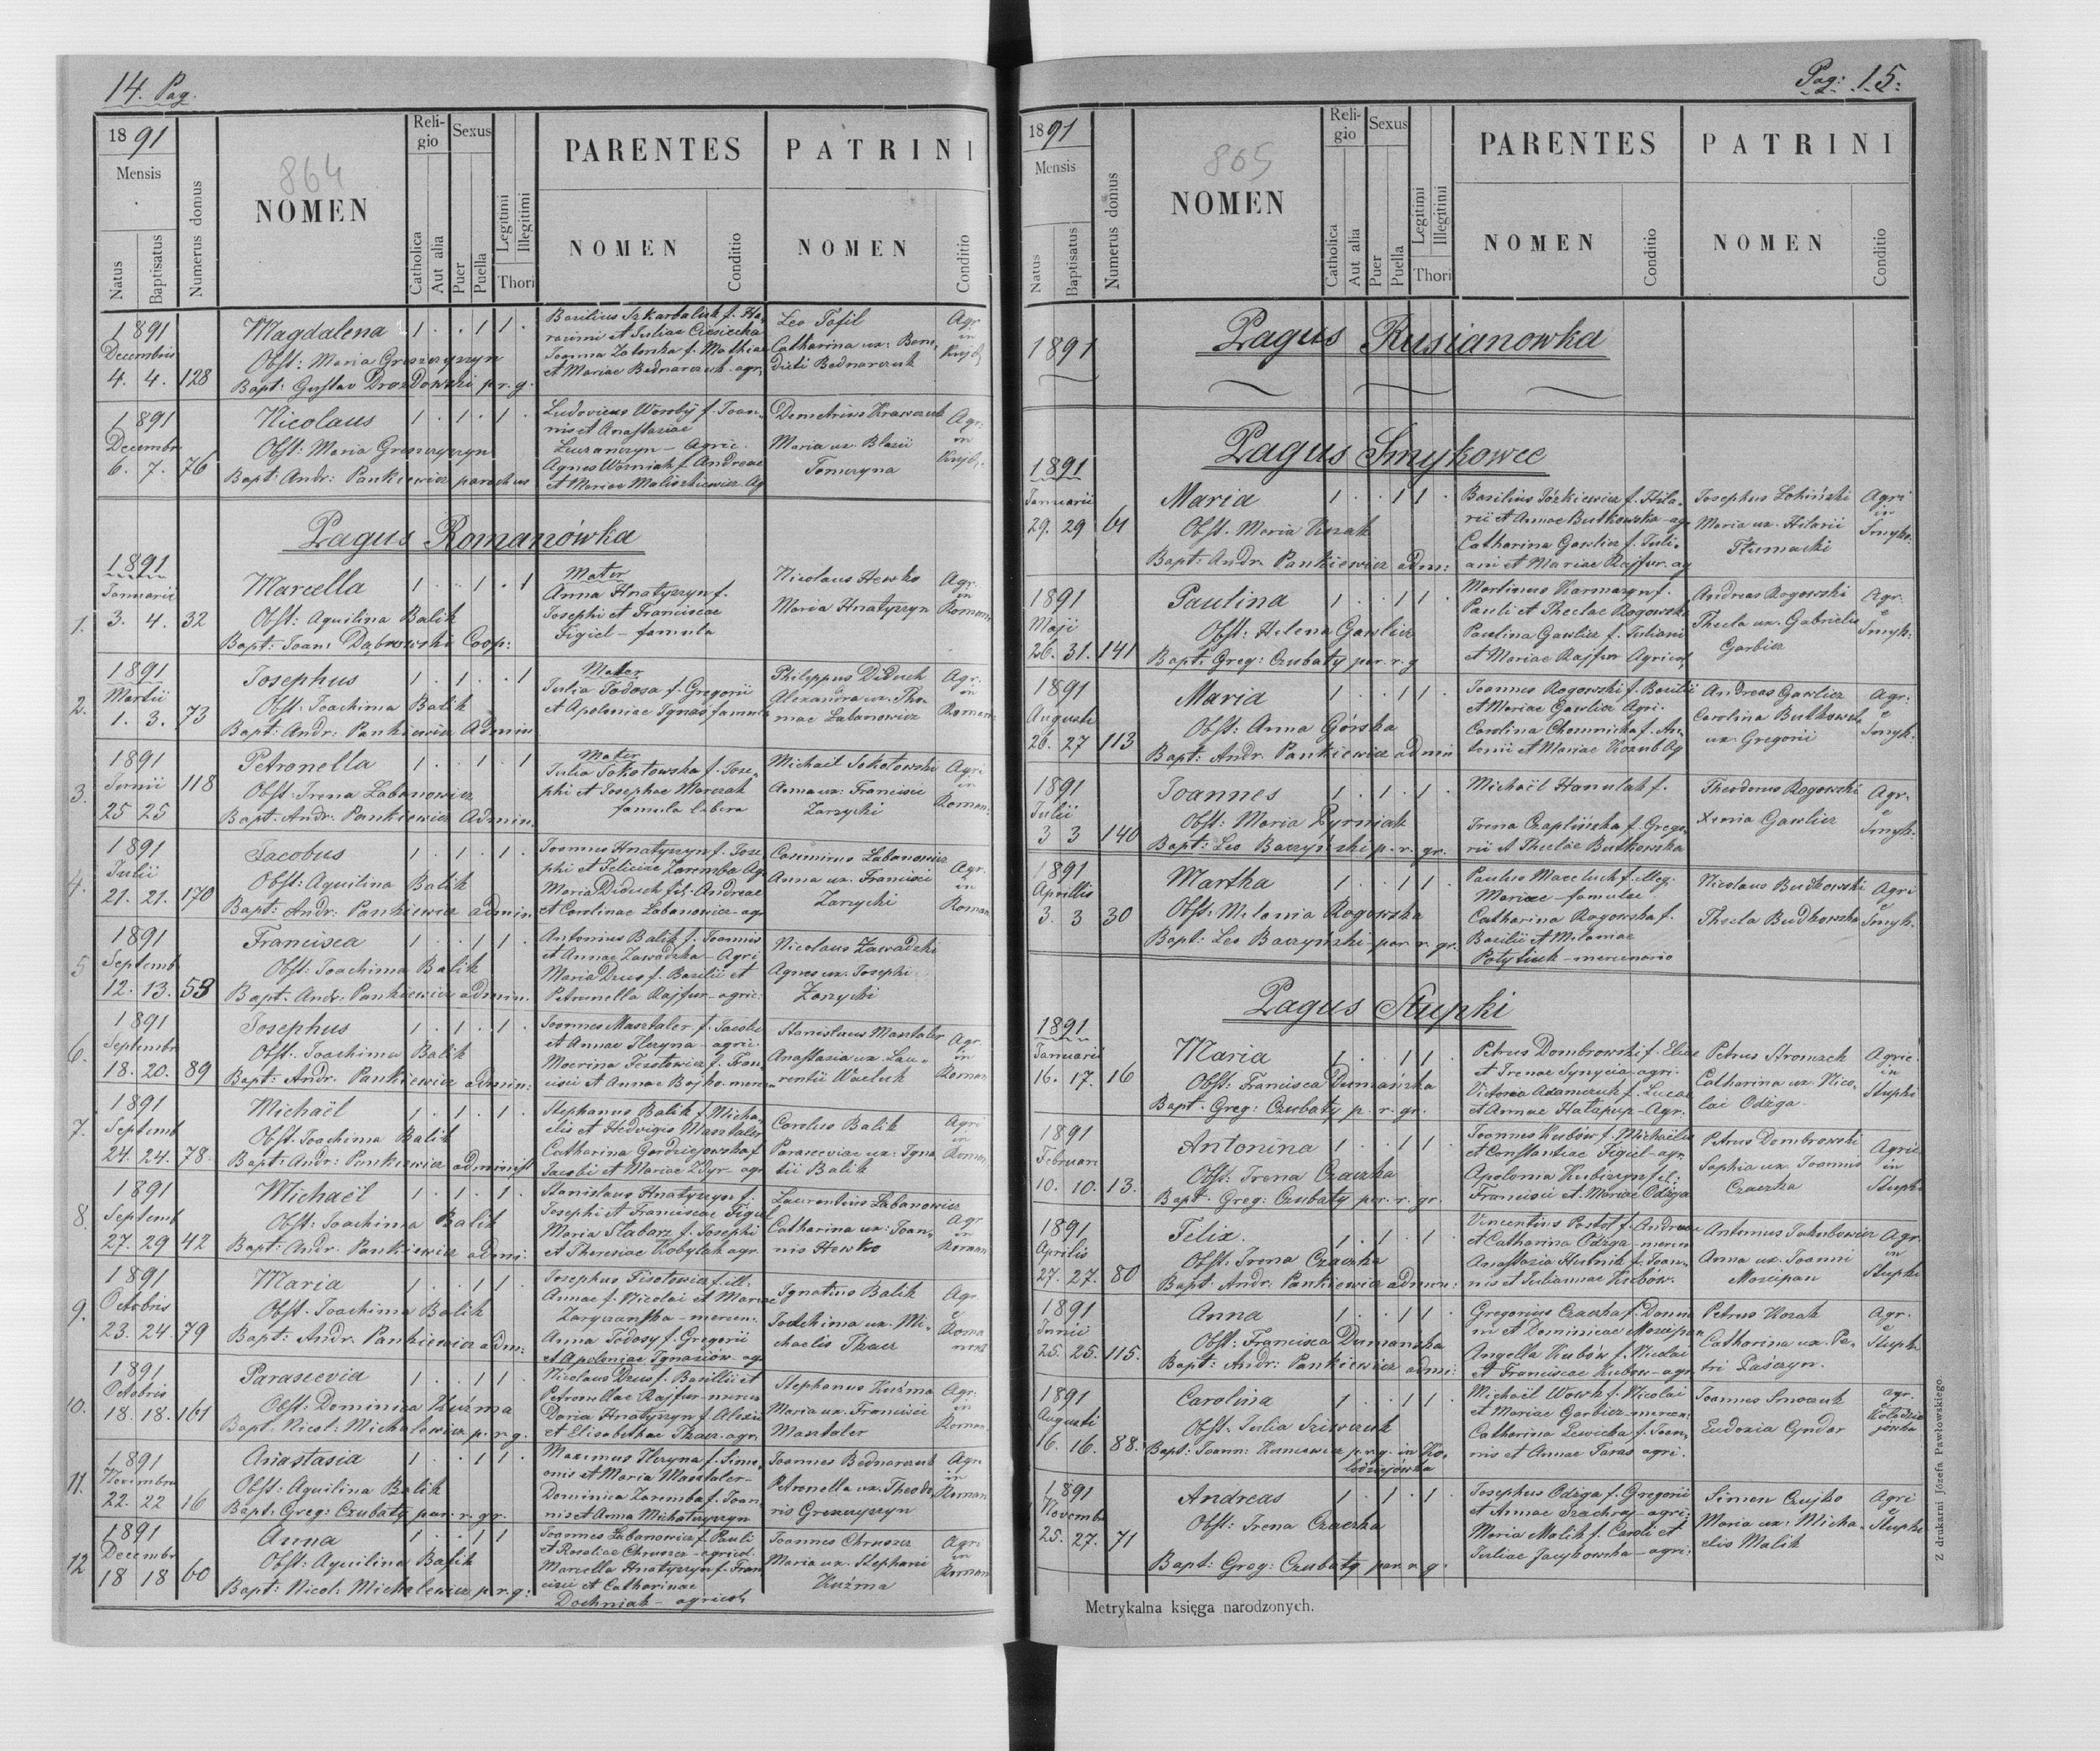 14. Pag.
1891
Mensis
Natus
Baptisatus
Numerus domus
864
NOMEN
Religio
Catholica
Aut alia
Sexus
Puer
Puella
Legitimi
Illegitimi
Thori
PARENTES
NOMEN
Conditio
PATRINI
NOMEN
Conditio
1891
Decembris
4. 4. 128
Magdalena
Obst: Maria
Bapt: Gustav Drozdowski p. r. g.
Leo Tofil
Catharina ux: Bene-
dicti Bednarczuk
Agr.
in
1891
Decembr
6. 7. 76
Nicolaus
Obst: Maria
Bapt: Andr: Pankiewicz parochus
Ludovicus f. Joan-
nis et Anastasiae
Agnes Woźniak f. Andreae
et Mariae Maliszkiewicz Ag
Demetrius Krawczuk
Maria ux. Blasii
Agr.
in
Pagus Romanówka
1.
1891
Januarii
3. 4. 32
Marcella
Obst: Aquilina Balik
Bapt: Joan: Dąbrowski Coop:
Mater
Anna Hnatyszyn f.
Josephi et Franciscae
Figiel - famula
Nicolaus Hewko
Maria Hnatyszyn
Agr.
in
Roman
2.
1891
Martii
1. 3. 73
Josephus
Obst: Joachima Balik
Bapt: Andr: Pankiewicz Admin
Mater
Julia Todosa f. Gregorii
et Apoloniae Ignaś famula
Philippus Diduch
Alexandra ux. Tho-
mae Labanowicz
Agr.
in
Roman:
3.
1891
Junii
25 25 118
Petronella
Obst: Irena Labanowicz
Bapt. Andr: Pankiewicz Admin.
Mater
Julia Sokołowska f. Jose-
phi et Josephae Marczak
famula libera
Michael Sokołowski
Anna ux: Francisci
Zarzycki
Agri
in
Roman:
4.
1891
Julii
21. 21. 170
Jacobus
Obst: Aquilina Balik
Bapt: Andr: Pankiewicz admin
Joannes Hnatyszyn f. Jose
phi et Feliciae Zaremba Ag.
Maria Diduch fil. Andreae
et Carolinae Labanowicz - agr
Casimirus Labanowicz
Anna ux. Francisci
Zarzycki
Agr.
in
Roman
5
1891
Septemb
12. 13. 53
Francisca
Obst: Joachima Balik
Bapt: Andr: Pankiewicz admin.
Antonius Balik f. Joannis
et Annae Zawadzka - Agri
Maria Dzus f. Basilii et
Petronella Rajfur - agric:
Nicolaus Zawadzki
Agnes ux. Josephi
Zarzycki
6.
1891
Septembr
18. 20. 89
Josephus
Obst. Joachima Balik
Bapt: Andr. Pankiewicz admin:
Joannes Masztaler f. Jacobi
et Annae Ilczyna - agric.
Stanislaus Masztaler
Anastasia ux. Lau-
rentii Waeluk
Agr
in
Roman
7.
1891
Septemb
24. 24. 78.
Michaël
Obst: Joachima Balik
Bapt: Andr: Pankiewicz administ
Stephanus Balik f. Micha
elis et Hedvigis Masztaler
Catharina Gordziejowska f
Jacobi et Mariae Zdyr - agr
Carolus Balik
Parasceviae ux: Igna
tii Balik
Agri
in
Roman
8.
1891
Septemb
27. 29 42
Michaël
Obst: Joachima Balik
Bapt: Andr: Pankiewicz admi:
Stanislaus Hnatyszyn f.
Josephi et Franciscae Figiel
Maria Slabarz f. Josephi
et Theresiae Kobylak agr.
Laurentius Labanowicz
Catharina ux: Joan-
nis Hewko
Agr
in
Roman
9.
1891
Octobris
23. 24. 79
Maria
Obst. Joachima Balik
Bapt: Andr. Pankiewicz adm:
Josephus Fisotowicz f. ill.
Annae f. Nicolai et Mariae
Anna Todosy f. Gregorii
et Apoloniae Ignaziów - ag
Ignatius Balik
Joachima ux. Mi-
chaelis Tkacz
Agr.
e
Roma
10.
1891
Octobris
18. 18. 161
Parascevia
Obst: Dominica Kuźma
Bapt. Nicol: Michalewicz p. r. g.
Nicolaus Dzus f. Basilii et
Petronellae Rajfur - mercen
Daria Hnatyszyn f. Alexii
et Elisabethae Tkacz - agr.
Stephanus Kuźma
Maria ux. Francisci
Masztaler
Agr.
in
Roman.
11.
1891
Novembris
22. 22 16
Anastasia
Obst: Aquilina Balik
Bapt: Greg: Czubaty par. r. gr.
Maximus Ilczyna f. Sime-
onis et Maria Masztaler -
Dominica Zaremba f. Joan
nis et Anna Michatyszyn
Joannes Bednarczuk
Petronella ux. Theodo
ris
Agr.
in
Roman
12
1891
Decembr
18 18 60
Anna
Obst: Aquilina Balik
Bapt: Nicol: Michalewicz p. r. g:
Joannes Labanowicz f. Pauli
et Rosaliae Chruszcz - agricol.
Marcella Hnatyszyn f. Fran
cisci et Catharinae
Dochniak - agricol,
Joannes Chruszcz
Maria ux. Stephani
Kuźma
Agri
in
Roman
Pag: 15.
1891
Mensis
Natus
Baptisatus
Numerus domus
865
NOMEN
Religio
Catholica
Aut alia
Sexus
Puer
Puella
Legitimi
Illegitimi
Thori
PARENTES
NOMEN
Conditio
PATRINI
NOMEN
Conditio
1891
Pagus Rusianowka
Pagus Smykowce
1891
Januarii
29. 29 61
Maria
Obst. Maria Kozak
Bapt: Andr. Pankiewicz adm:
Basilius Józkiewicz f. Hila-
rii et Annae Butkowska - ag
Catharina Gawlicz f. Juli-
ani et Mariae Rajfur. ag
Josephus Łohiński
Maria ux. Hilarii
Tłumacki
Agri
in
Smyko:
1891
Maji
26. 31. 141
Paulina
Obst: Helena Gawlicz
Bapt: Greg: Czubaty par. r. g
Martinus Karmazyn f.
Pauli et Theclae Rogowska
Paulina Gawlicz f. Juliani
et Mariae Rajfur Agricol,
Andreas Rogowski
Thecla ux. Gabrielis
Garbicz
Agr.
e
Smyk:
1891
Augusti
26. 27 113
Maria
Obst: Anna Górska
Bapt: Andr. Pankiewicz admin
Joannes Rogowski f. Basilii
et Mariae Gawlicz Agri.
Carolina Chomnicka f. An-
tonii et Mariae Kozub Ag
Andreas Gawlicz
Carolina Butkowsk
ux. Gregorii
Agr:
e
Smyk.
1891
Julii
3 3 140
Joannes
Obst: Maria Pyrniak
Bapt: Leo Baczyński p. r. gr.
Michaël Hanulak f.
Irena Czaplińska f. Grego-
rii et Theclae Butkowska
Theodorus Rogowski
Xenia Gawlicz
Agr.
e
Smyk.
1891
Aprillis
3. 3 30
Martha
Obst: Melania Rogowska
Bapt: Leo Baczyński - par. r. gr.
Paulus Maceluch f. illeg.
Mariae - famulae
Catharina Rogowska f.
Basilii et Melaniae
Potytiuk - mercenario
Nicolaus Budkowski
Thecla Budkowska
Agri
e
Smyk.
Pagus Stupki
1891
Januarii
16. 17. 16
Maria
Obst: Francisca Dumańska
Bapt. Greg: Czubaty p. r. gr.
Petrus Dombrowski f. Eliae
et Irenae Synycia - agri.
Victoria Adamczuk f. Lucae
et Annae Hałapup - Agr.
Petrus Stromzch
Catharina ux. Nico-
lai Odżga
Agric.
in
Stupki
1891
Februari
10. 10. 13.
Antonina
Obst: Irena Czaczka
Bapt. Greg: Czubaty par. r. gr.
Joannes Kubów f. Michaëlis
et Constantiae Figiel - agr.
Apolonia Kubiszyn fil:
Francisci et Mariae Odżga
Petrus Dombrowski
Sophia ux. Joannis
Czaczka
Agric
in
Stupki
1891
Aprilis
27. 27. 80
Felix.
Obst: Irena Czaczka
Bapt: Andr. Pankiewicz admin:
Vincentius Postoł f. Andreae
et Catharina Odżga - mercen
Anastasia Hutnik f. Joan-
nis et Julianae Kubów.
Antonius Jakubowicz
Anna ux. Joanni
Moscipan
Agr.
in
Stupki
1891
Junii
25. 25. 115.
Anna
Obst: Francisca Dumańska
Bapt: Andr: Pankiewicz admi:
Gregorius Czaczka f. Damia
ni et Dominicae Moscipan
Angella Kubów f. Nicolai
et Franciscae Kubow - agr
Petrus Kozak
Catharina ux. Pe-
tri Paszczyn.
Agr.
e
Stupki
1891
Augusti
16. 16. 88.
Carolina
Obst: Julia Szewczuk
Bapt: Joann: p. r. g. in Ko-
łodziejówka
Michaël Wowk f. Nicolai
et Mariae Garbicz - mercen:
Catharina Lewicka f. Joan-
nis et Annae Taras agri.
Joannes Smoczuk
Eudoxia Cyndar
agr.
e
Kołodzie
jówka
1891
Novembr
25. 27. 71
Andreas
Obst: Irena Czaczka
Bapt: Greg: Czubaty par. r. g:
Josephus Odżga f. Gregorii
et Annae Szachraj - agri:
Maria Malik f. Caroli et
Juliae Jacykowska - agri:
Simon Czujko
Maria ux: Micha-
elis Malik
Agri
e
Stupki
Metrykalna księga narodzonych.
Z drukarni Józefa Pawłowskiego.